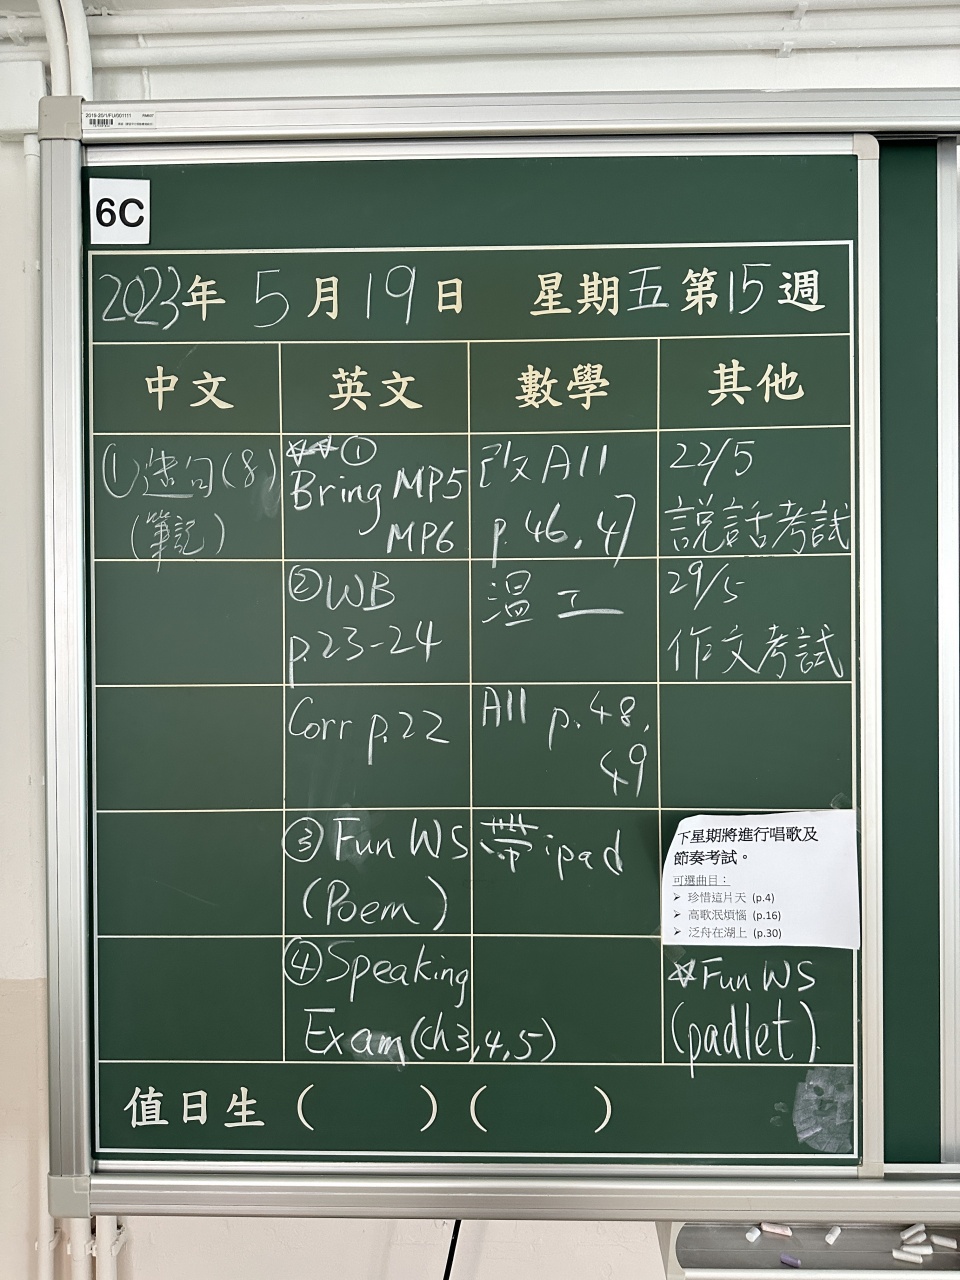 2019-20/1/FU/001111
6C
2023年 5月19日 星期五第15週
中文 英文 數學 其他
①造句(8)
(筆記)
①
Bring MP5
MP6
②WB
p.23-24
Corr p.22
③Fun WS
(Poem)
④Speaking
Exam(ch3,4,5)
改 A11
p.46,47
溫工
A11 p.48,
49
帶ipad
22/5
説話考試
29/5
作文考試
下星期將進行唱歌及
節奏考試。
可選曲目：
➢ 珍惜這片天 (p.4)
➢ 高歌泯煩惱 (p.16)
➢ 泛舟在湖上 (p.30)
☆Fun WS
(padlet)
值日生 ( ) ( )